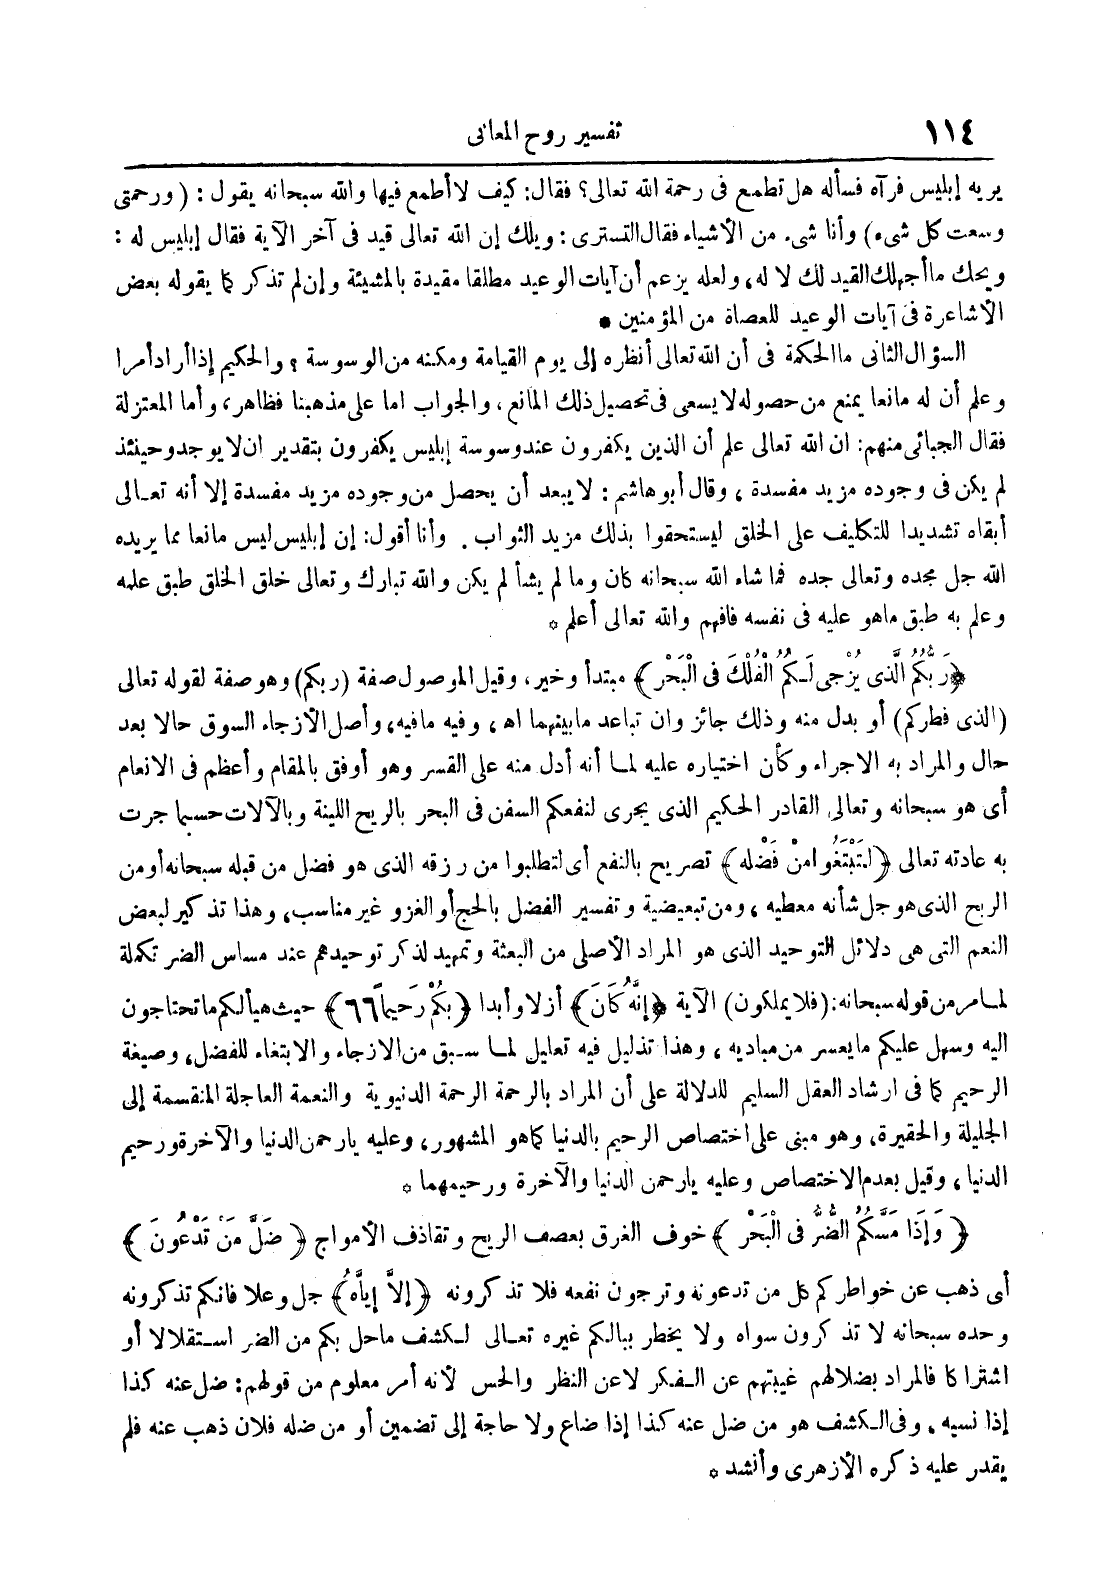 ١١٤ تفسير روح المعانى
يريه إبليس فرآه فسأله هل تطمع فى رحمة الله تعالى؟ فقال: كيف لا أطمع فيها والله سبحانه يقول: (ورحمتى
وسعت كل شىء) وأنا شىء من الأشياء فقال التسترى: ويلك إن الله تعالى قيد فى آخر الآية فقال إبليس له:
ويحك ما أجهلك القيد لك لا له، ولعله يزعم أن آيات الوعيد مطلقا مقيدة بالمشيئة وإن لم تذكر كما يقوله بعض
الأشاعرة فى آيات الوعيد للعصاة من المؤمنين *
السؤال الثانى ما الحكمة فى أن الله تعالى أنظره إلى يوم القيامة ومكنه من الوسوسة؟ والحكيم إذا أراد أمرا
وعلم أن له مانعا يمنع من حصوله لا يسعى فى تحصيل ذلك المانع، والجواب اما على مذهبنا فظاهر، وأما المعتزلة
فقال الجبائى منهم: ان الله تعالى علم أن الذين يكفرون عند وسوسة إبليس يكفرون بتقدير ان لا يوجد وحينئذ
لم يكن فى وجوده مزيد مفسدة، وقال أبو هاشم: لا يبعد أن يحصل من وجوده مزيد مفسدة إلا أنه تعالى
أبقاه تشديدا للتكليف على الخلق ليستحقوا بذلك مزيد الثواب. وأنا أقول: إن إبليس ليس مانعا مما يريده
الله جل مجده وتعالى جده فما شاء الله سبحانه كان وما لم يشأ لم يكن والله تبارك وتعالى خلق الخلق طبق علمه
وعلم به طبق ماهو عليه فى نفسه فافهم والله تعالى أعلم *
﴿رَبُّكُمُ الَّذى يُزْجى لَكُمُ الْفُلْكَ فى الْبَحْر﴾ مبتدأ وخير، وقيل الموصول صفة (ربكم) وهو صفة لقوله تعالى
(الذى فطركم) أو بدل منه وذلك جائز وان تباعد مابينهما اه، وفيه مافيه، وأصل الازجاء السوق حالا بعد
حال والمراد به الاجراء وكأن اختياره عليه لما أنه أدل منه على القسر وهو أوفق بالمقام وأعظم فى الانعام
أى هو سبحانه وتعالى القادر الحكيم الذى يجرى لنفعكم السفن فى البحر بالريح اللينة وبالآلات حسبما جرت
به عادته تعالى ﴿لتَبْتَغُوا منْ فَضْله﴾ تصريح بالنفع أى لتطلبوا من رزقه الذى هو فضل من قبله سبحانه أو من
الربح الذى هو جل شأنه معطيه، ومن تبعيضية وتفسير الفضل بالحج أو الغزو غير مناسب، وهذا تذكير لبعض
النعم التى هى دلائل التوحيد الذى هو المراد الأصلى من البعثة وتمهيد لذكر توحيدهم عند مساس الضر تكملة
لما مر من قوله سبحانه: (فلا يملكون) الآية ﴿إنَّهُ كَانَ﴾ أزلا وأبدا ﴿بكُمْ رَحيماً ٦٦﴾ حيث هيأ لكم ما تحتاجون
اليه وسهل عليكم مايعسر من مباديه، وهذا تذليل فيه تعليل لما سبق من الازجاء والابتغاء للفضل، وصيغة
الرحيم كما فى ارشاد العقل السليم للدلالة على أن المراد بالرحمة الرحمة الدنيوية والنعمة العاجلة المنقسمة إلى
الجليلة والحقيرة، وهو مبنى على اختصاص الرحيم بالدنيا كما هو المشهور، وعليه يارحمن الدنيا والآخرة ورحيم
الدنيا، وقيل بعدم الاختصاص وعليه يارحمن الدنيا والآخرة ورحيمهما *
﴿وَإذَا مَسَّكُمُ الضُّرُّ فى الْبَحْر﴾ خوف الغرق بعصف الريح وتقاذف الأمواج ﴿ضَلَّ مَنْ تَدْعُونَ﴾
أى ذهب عن خواطركم كل من تدعونه وترجون نفعه فلا تذكرونه ﴿إلاَّ إيَّاهُ﴾ جل وعلا فانكم تذكرونه
وحده سبحانه لا تذكرون سواه ولا يخطر ببالكم غيره تعالى لكشف ماحل بكم من الضر استقلالا أو
اشتراكا فالمراد بضلالهم غيبتهم عن الفكر لا عن النظر والحس لأنه أمر معلوم من قولهم: ضل عنه كذا
إذا نسيه، وفى الكشف هو من ضل عنه كذا إذا ضاع ولا حاجة إلى تضمين أو من ضله فلان ذهب عنه فلم
يقدر عليه ذكره الأزهرى وأنشد *